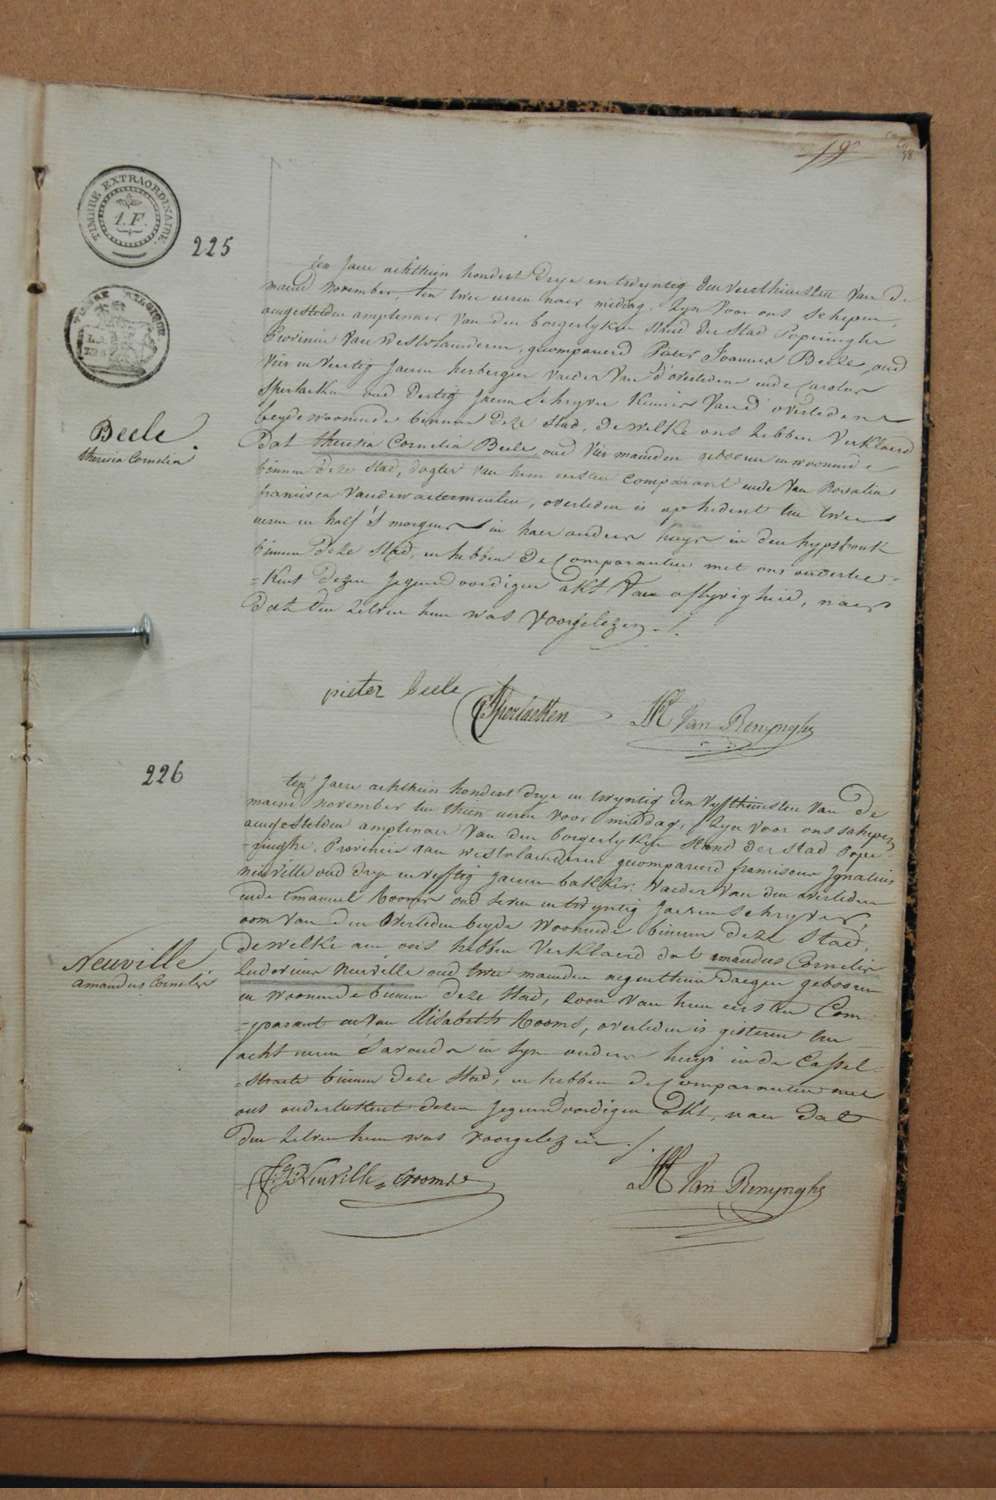 19e
TIMBRE EXTRAORDINAIRE.
1.F.
225
ten Jaere achthien hondert drye en twyntig den veerthiensten van de
maend november, ten twee uren naer middag, zyn voor ons schepen
aengestelden amptenaer van den borgerlyken stand der Stad Poperinghe
Provincie van Westvlaenderen, gecompareerd Pieter Joannes Beele, oud
vier en veertig Jaeren herbergier vaeder van d'overledene ende Carolus
Sperlaeken oud dertig Jaeren Schryver Kennis van d'overledene
beyde woonende binnen deze Stad, dewelke ons hebben verklaerd
Beele
theresia Cornelia
dat theresia Cornelia Beele, oud vier maenden geboren en woonende
binnen deze Stad, dogter van hem eersten comparant ende van Rosalia
francisca Vanderwaetermeulen, overleden is op heden ten twee
uren en half s'morgens in haer ouders huys in den hypshouk
binnen deze Stad, en hebben de Comparanten met ons ondertee-
=kent dezen Jegenwoordigen akt van aflyvigheid, naer
dat den zelven hun was voorgelezen ./.
pieter beele
C Sperlaeken
Van Renynghe
226
ten Jaere achthien hondert drye en twyntig den vyfthiensten van de
maend november ten thien uren voor middag, zyn voor ons schepen
aengestelden amptenaer van den borgerlyken stand der stad Pope-
=ringhe, Provincie van Westvlaenderen gecompareerd franciscus Ignatius
neuville oud drye en vyftig Jaeren bakker vaeder van den overleden
ende Emanuel Rooms oud zeven en twyntig Jaeren Schryver
oom van den Overleden beyde woonende binnen deze Stad,
Neuville
amandus Cornelis
dewelke aen ons hebben verklaerd dat amandus Cornelis
Ludovicus Neuville oud twee maenden negenthien daegen geboren
en woonende binnen deze Stad, zoon van hem eersten Com-
=parant en van Elisabeth Rooms, overleden is gisteren ten
acht uren s'avonds in zyn ouders huys in de Cassel-
=straete binnen deze Stad, en hebben de Comparanten met
ons onderteekent dezen Jegenwoordigen akt, naer dat
den zelven hun was voorgelezen ./.
F: J: Neuville = E rooms
Van Renynghe